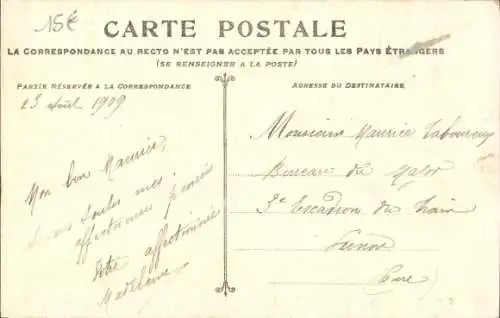 15€
CARTE POSTALE
LA CORRESPONDANCE AU RECTO N'EST PAS ACCEPTÉE PAR TOUS LES PAYS ÉTRANGERS
(SE RENSEIGNER A LA POSTE)
PARTIE RÉSERVÉE A LA CORRESPONDANCE
ADRESSE DU DESTINATAIRE
23 août 1909
Mon bon Maurice,
toutes mes
affectueuses pensées
Votre affectionnée
Madeleine
Monsieur Maurice
Bureau du Major
3e Escadron du Train
(Eure)